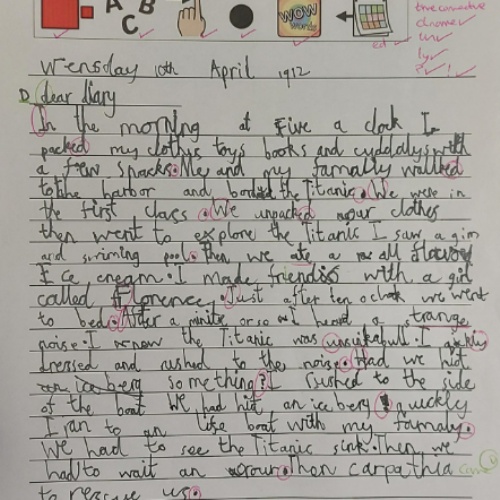 A B
C
WOW
words
Wensday 10th April 1912
D dear diary
In the morning at Five a clock I
packed my clothis toys books and cuddalys with
a few snacks. Me and my famally walked
to the harbor and borded the Titanic. We were in
the first class. We unpacked our clothes
then went to explore the Titanic I saw a gim
and swimming pool. Then we ate a all flavour
Ice cream. I made friends with a girl
called Florence. Just after ten o clock we went
to bed. After a minite or so I heard a strange
noise. I know the Titanic was unsinkabull. I quickly
dressed and rushed to the noise. Had we hit
something? I rushed to the side
of the boat We had hit an ice berg! quickly
I ran to an life boat with my famaly.
We had to see the Titanic sink. Then we
had to wait an hour. Then carpathia came
to rescue us.